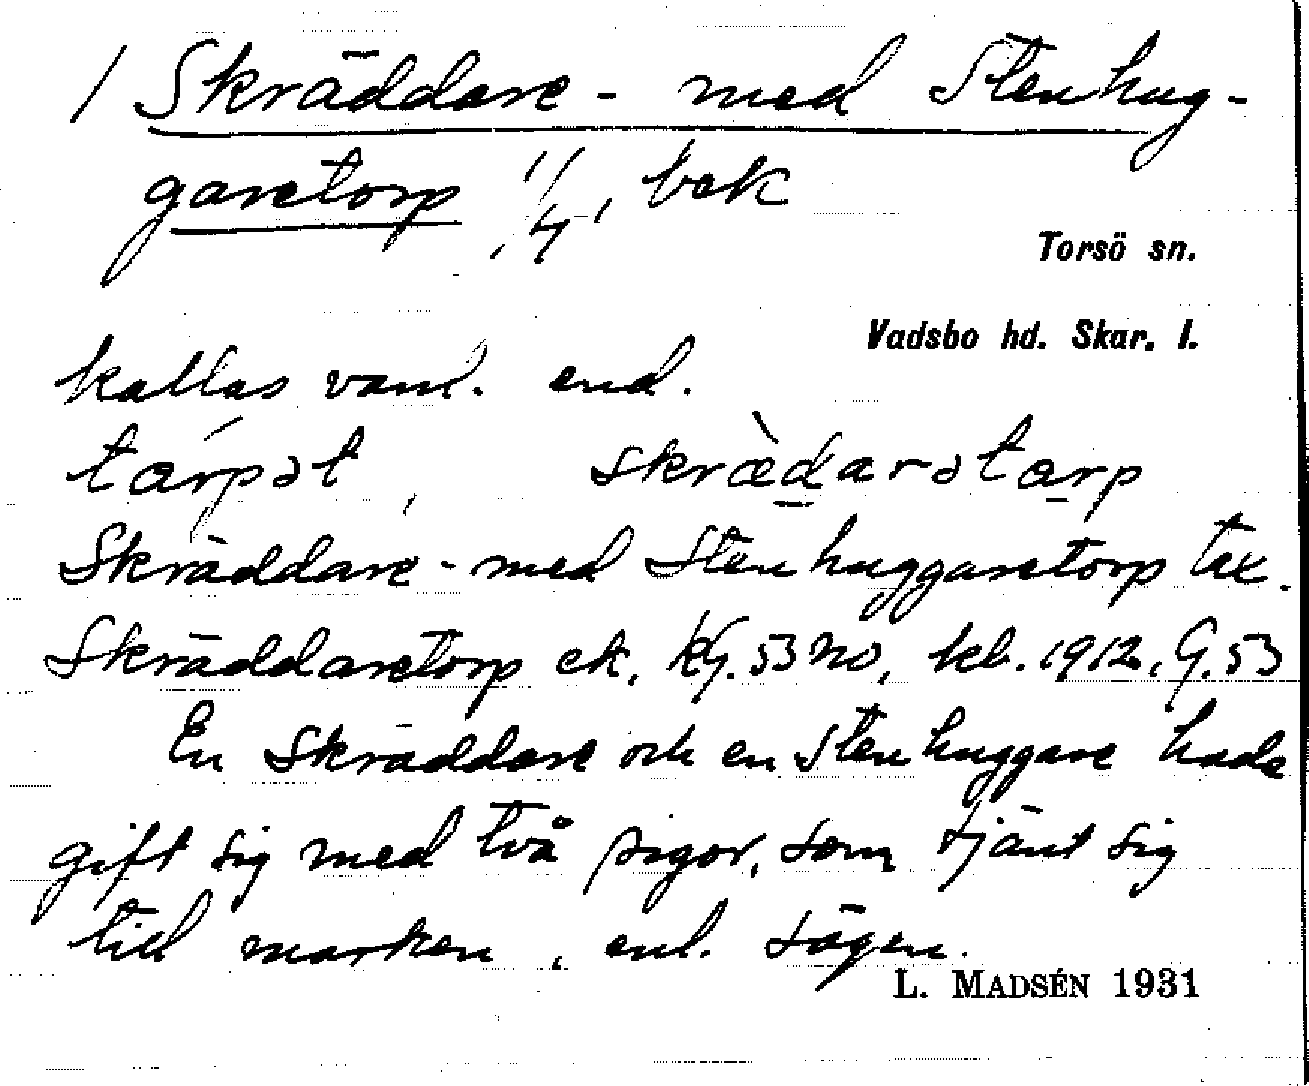 / Skräddare- med Stenhug-
garetorp 1/4, bek
Torsö sn.
Vadsbo hd. Skar. l.
kallas vanl. end.
tárpət, skræ̀darətarp
Skräddare- med Stenhuggaretorp tax.
Skräddaretorp ek. KG. 53 NO, kb. 1912, G. 53
En skräddare och en stenhuggare hade
gift sig med två pigor, som tjänt sig
till marken, enl. sägen.
L. MADSÉN 1931